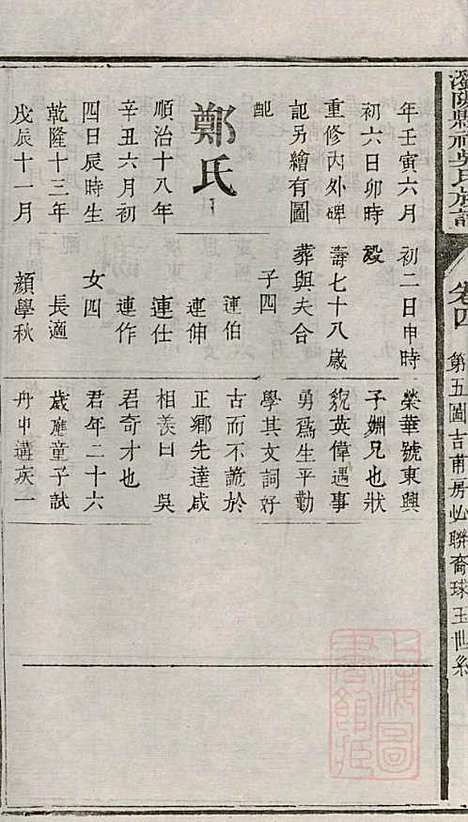 陽縣
吳氏族譜
卷四
第五圖吉甫房必聯裔球玉世系
年壬寅六月
初六日卯時
重修內外碑
記另繪有圖
配
鄭氏
順治十八年
辛丑六月初
四日辰時生
乾隆十三年
戊辰十一月
初二日申時
歿
壽七十八歲
葬與夫合
子四
連伯
連伸
連仕
連作
女四
長適
顏學秋
榮華號東興
子嫻兄也狀
貌英偉遇事
勇為生平勤
學其文詞好
古而不詭於
正鄉先達咸
相羨曰 吳
君奇才也
君年二十六
歲應童子試
舟中遘疾一
上海圖
書館藏